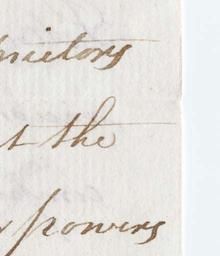 rietors
t the
powers